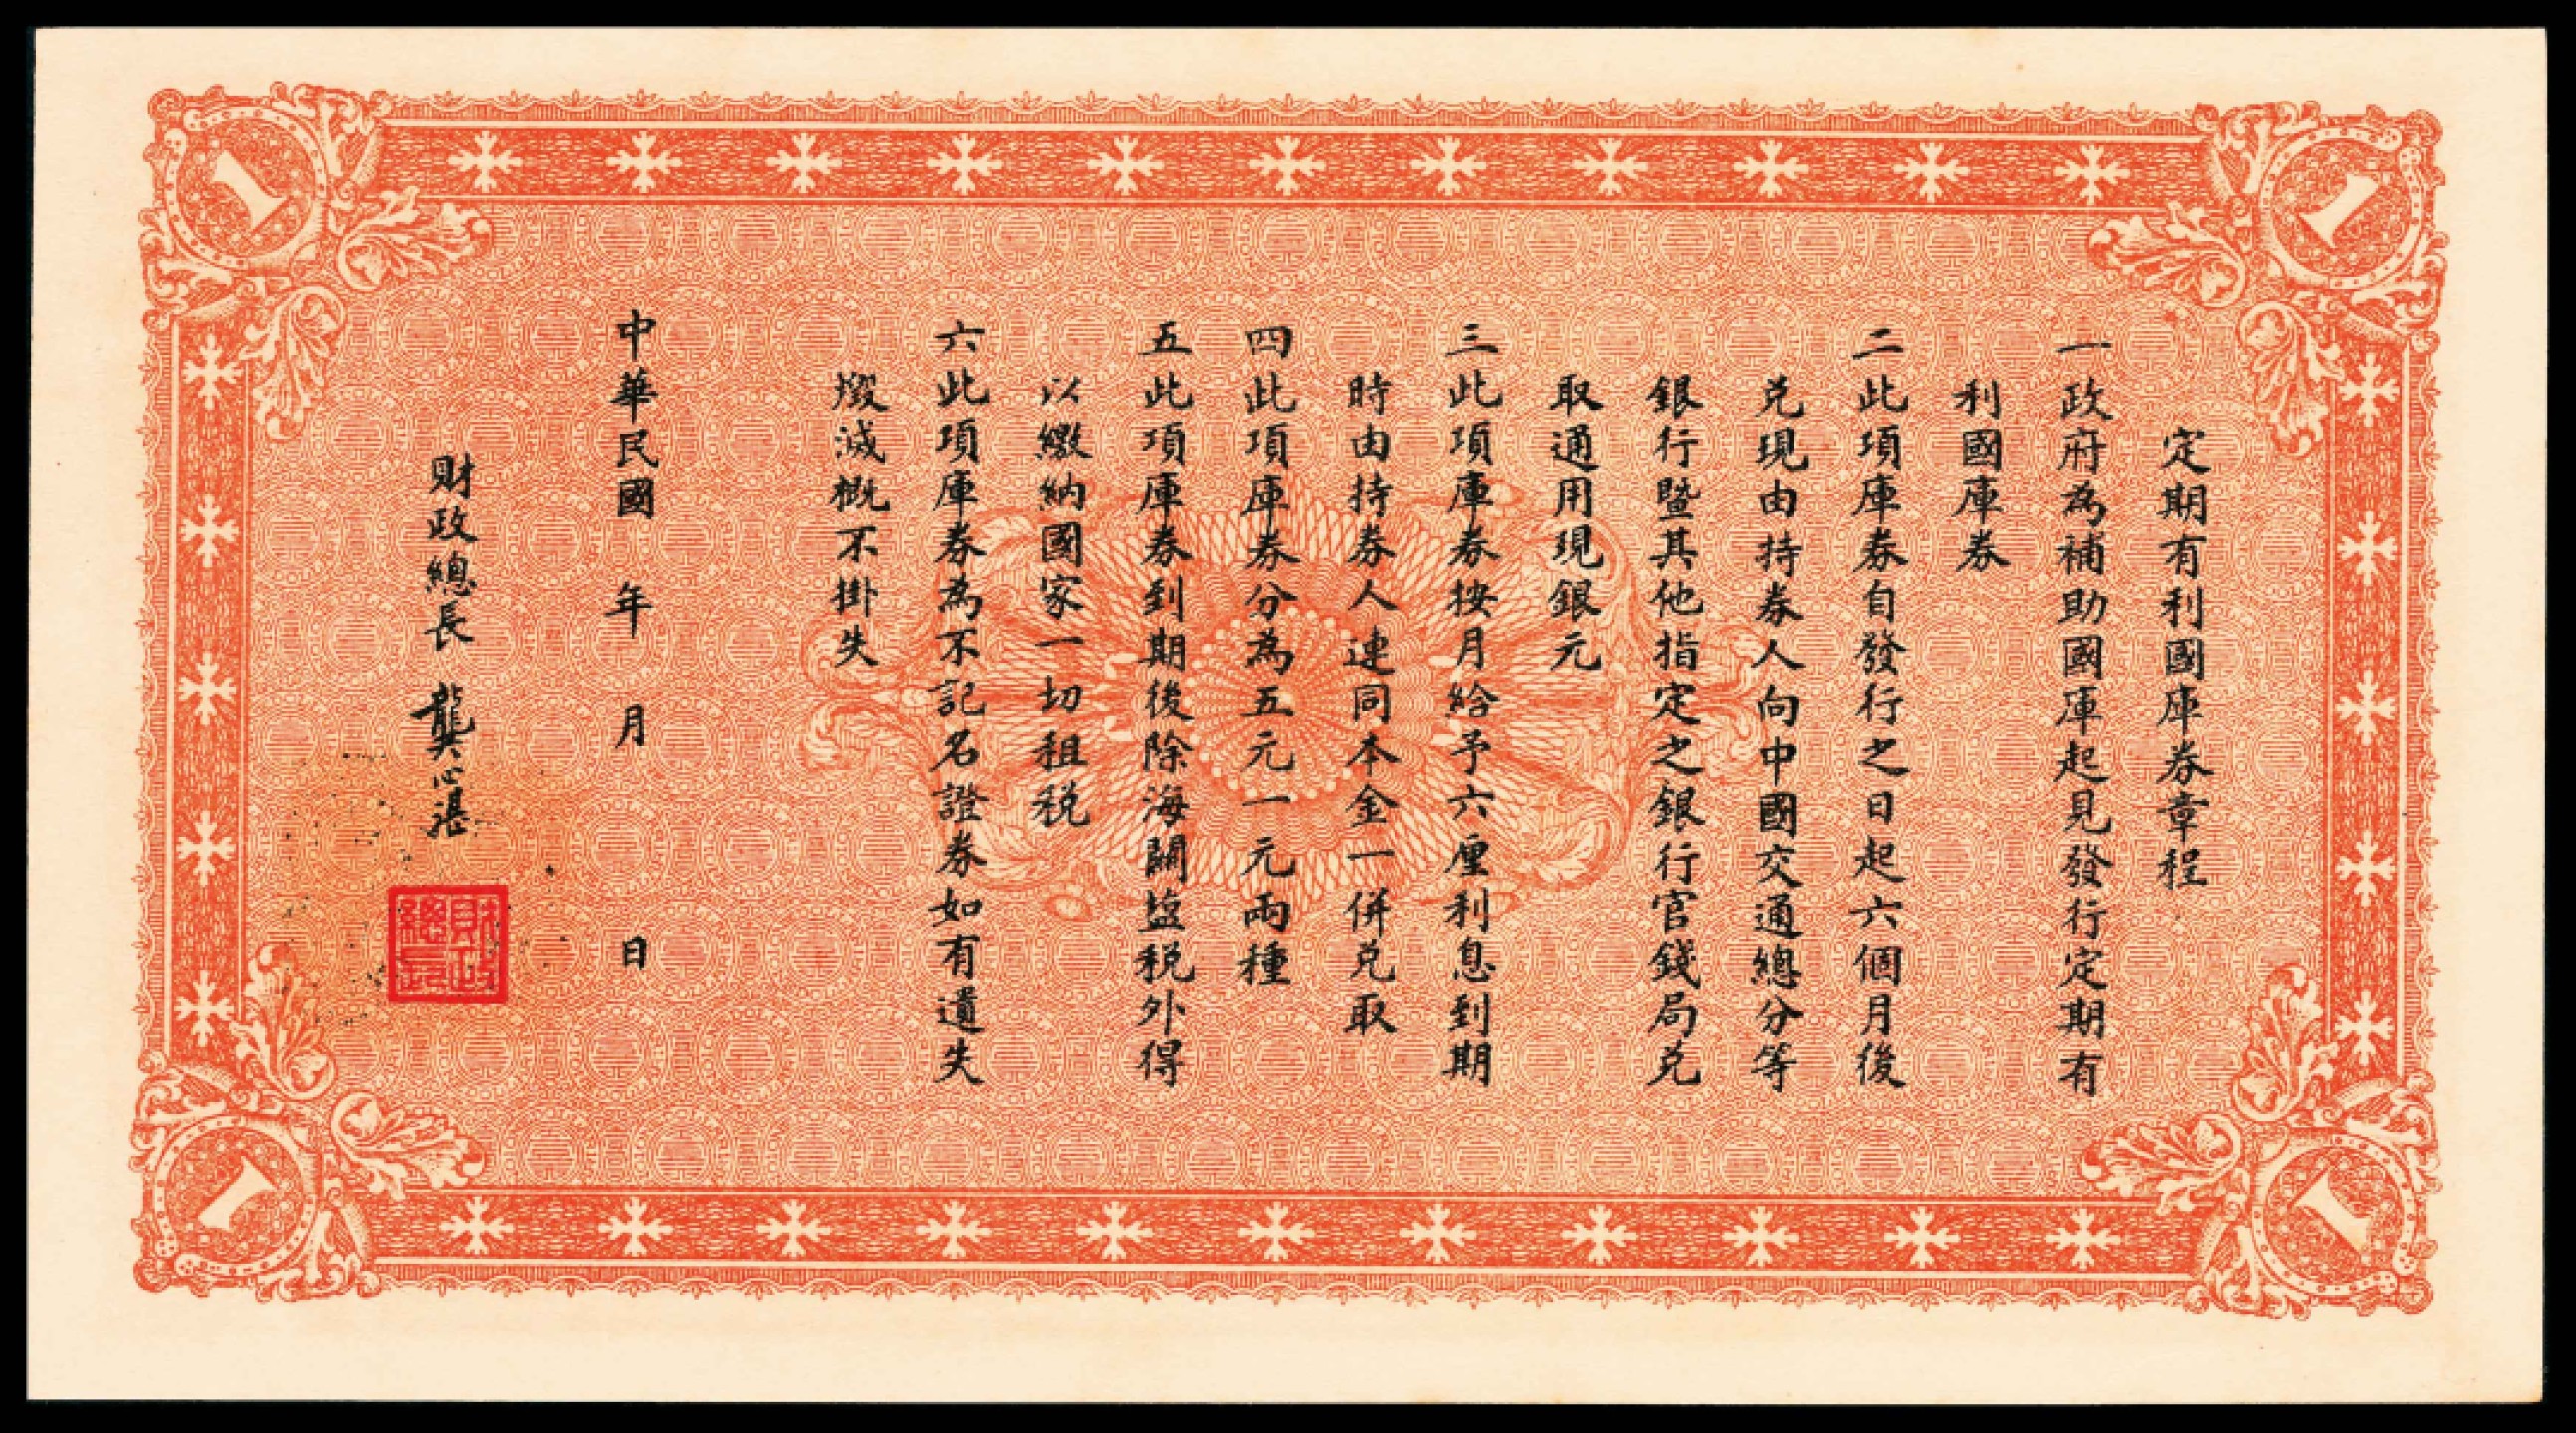 定期有利國庫券章程
一政府為補助國庫起見發行定期有
利國庫券
二此項庫券自發行之日起六個月後
兌現由持券人向中國交通總分等
銀行暨其他指定之銀行官錢局兌
取通用現銀元
三此項庫券按月給予六厘利息到期
時由持券人連同本金一併兌取
四此項庫券分為五元一元兩種
五此項庫券到期後除海關盐税外得
以繳納國家一切租税
六此項庫券為不記名證券如有遺失
燬滅概不掛失
中華民國 年 月 日
財政總長 龔心湛
財政總長
1
1
1
1